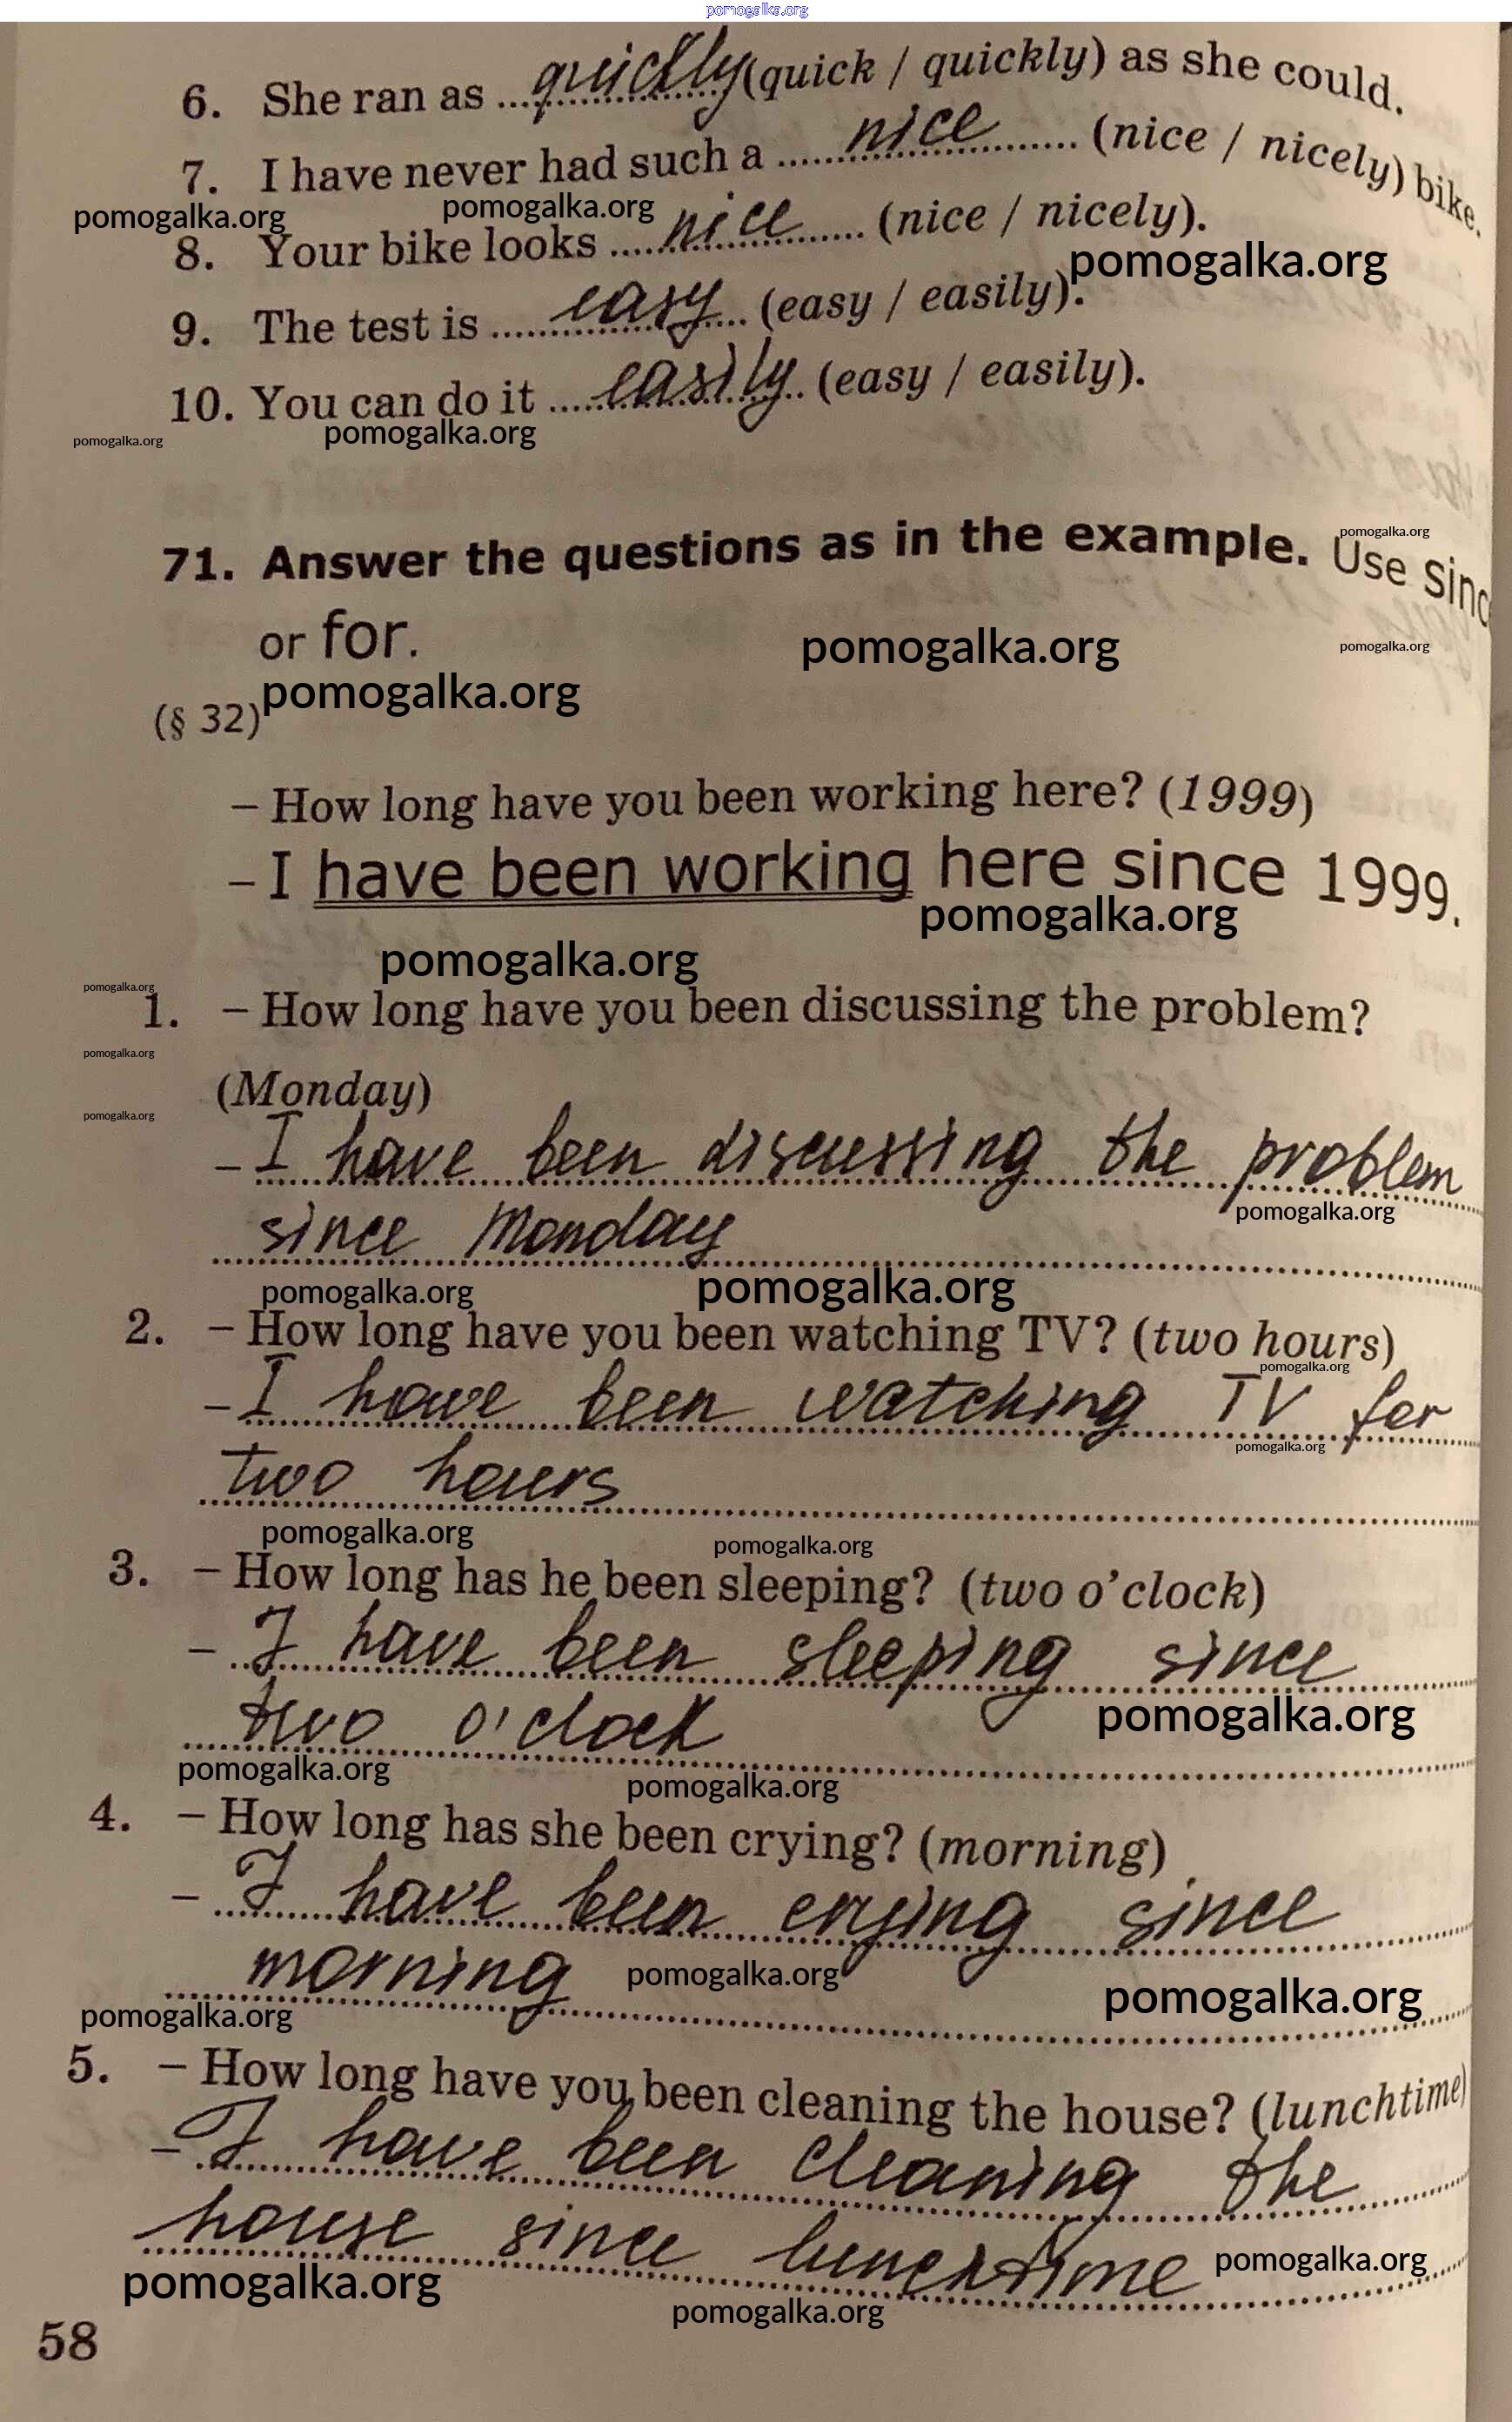 pomogalka.org
6. She ran as ...quickly...(quick / quickly) as she could.
7. I have never had such a ...nice... (nice / nicely) bike.
pomogalka.org pomogalka.org
8. Your bike looks ...nice... (nice / nicely).
pomogalka.org
9. The test is ...easy... (easy / easily).
10. You can do it ...easily... (easy / easily).
pomogalka.org pomogalka.org
pomogalka.org
71. Answer the questions as in the example. Use sinc
or for.
pomogalka.org pomogalka.org
pomogalka.org
(§ 32)
– How long have you been working here? (1999)
– I have been working here since 1999.
pomogalka.org
pomogalka.org
pomogalka.org
1. – How long have you been discussing the problem?
pomogalka.org
(Monday)
pomogalka.org
– I have been discussing the problem
pomogalka.org
since Monday
pomogalka.org pomogalka.org
2. – How long have you been watching TV? (two hours)
pomogalka.org
– I have been watching TV for
pomogalka.org
two hours
pomogalka.org pomogalka.org
3. – How long has he been sleeping? (two o'clock)
– I have been sleeping since
two o'clock
pomogalka.org
pomogalka.org pomogalka.org
4. – How long has she been crying? (morning)
– I have been crying since
morning
pomogalka.org pomogalka.org
pomogalka.org
5. – How long have you been cleaning the house? (lunchtime)
– I have been cleaning the
house since lunchtime
pomogalka.org pomogalka.org
pomogalka.org
58